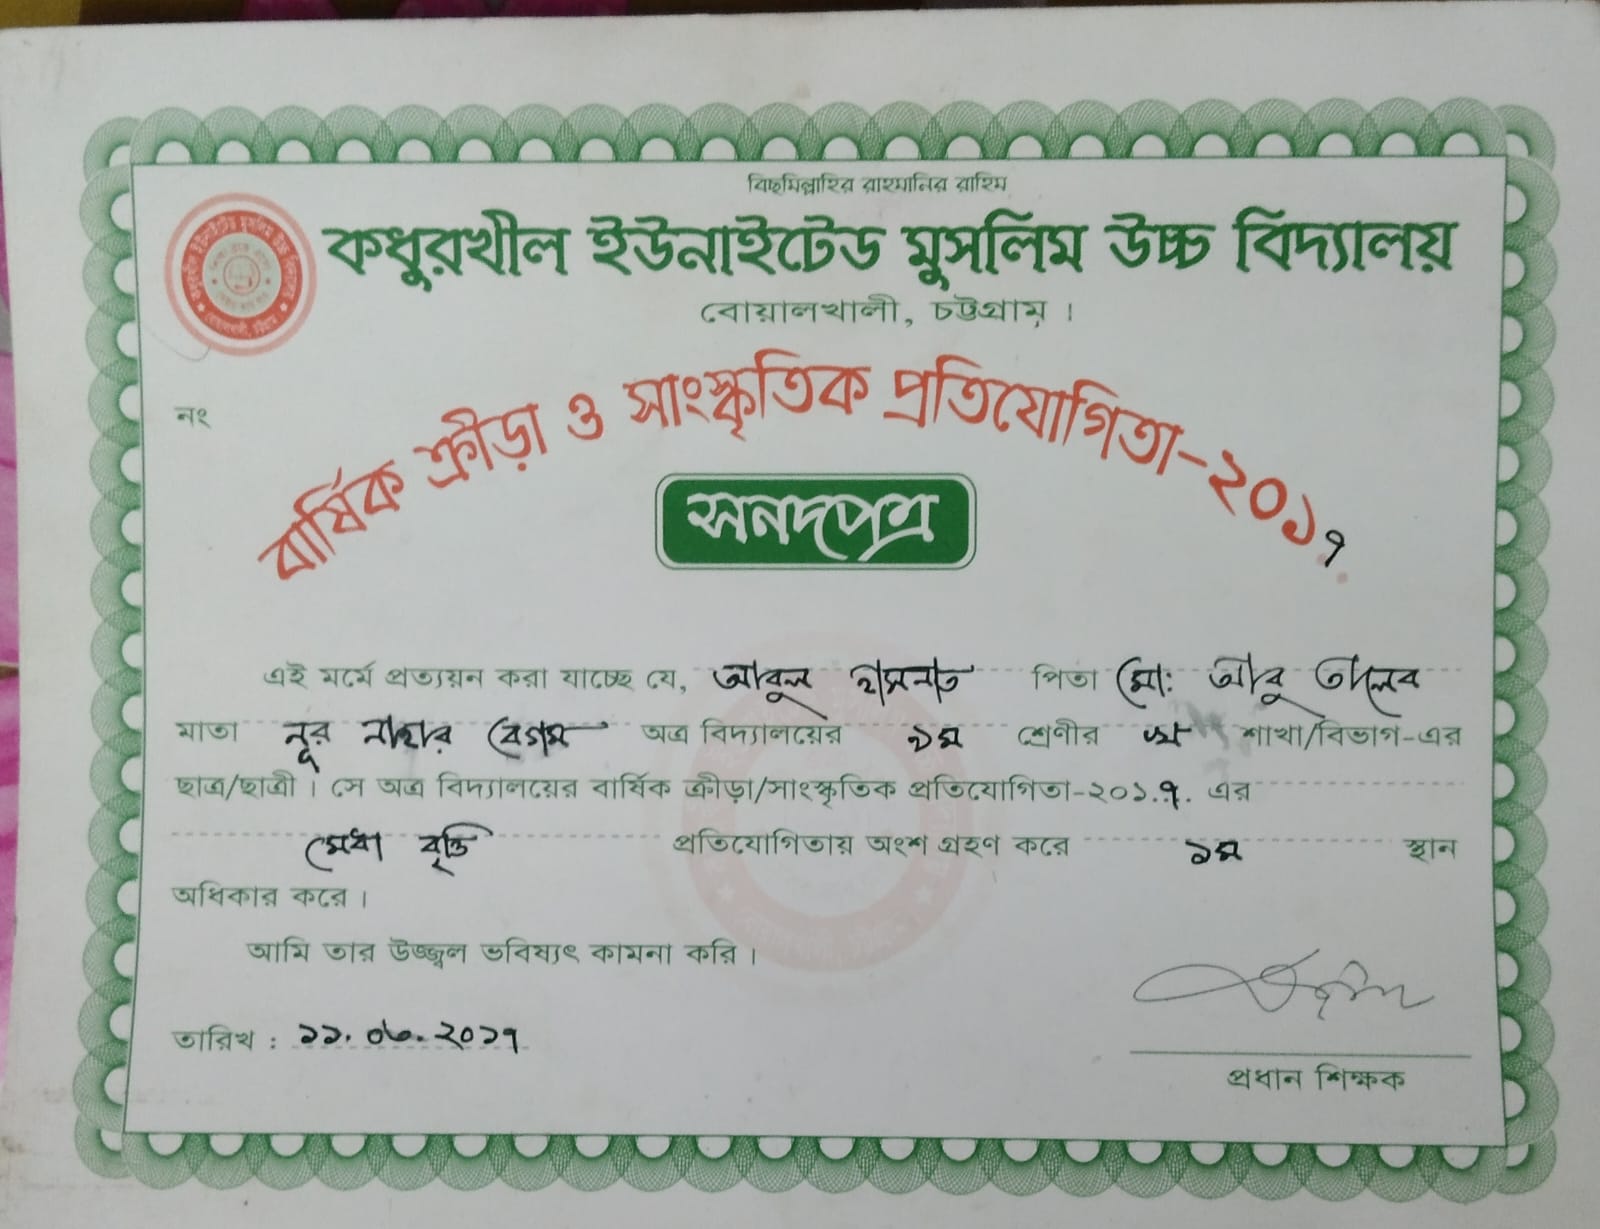 বিছমিল্লাহির রাহমানির রাহিম
কধুরখীল ইউনাইটেড মুসলিম উচ্চ বিদ্যালয়
বোয়ালখালী, চট্টগ্রাম ।
নং
বার্ষিক ক্রীড়া ও সাংস্কৃতিক প্রতিযোগিতা-২০১৭
সনদপত্র
এই মর্মে প্রত্যয়ন করা যাচ্ছে যে, আবুল হাসনাত পিতা মো: আবু তালেব
মাতা নূর নাহার বেগম অত্র বিদ্যালয়ের ৯ম শ্রেণীর শাখা/বিভাগ-এর
ছাত্র/ছাত্রী । সে অত্র বিদ্যালয়ের বার্ষিক ক্রীড়া/সাংস্কৃতিক প্রতিযোগিতা-২০১৭. এর
মেধা বৃত্তি প্রতিযোগিতায় অংশ গ্রহণ করে ১ম স্থান
অধিকার করে ।
আমি তার উজ্জ্বল ভবিষ্যৎ কামনা করি ।
তারিখ : ১১. ০৬. ২০১৭
প্রধান শিক্ষক